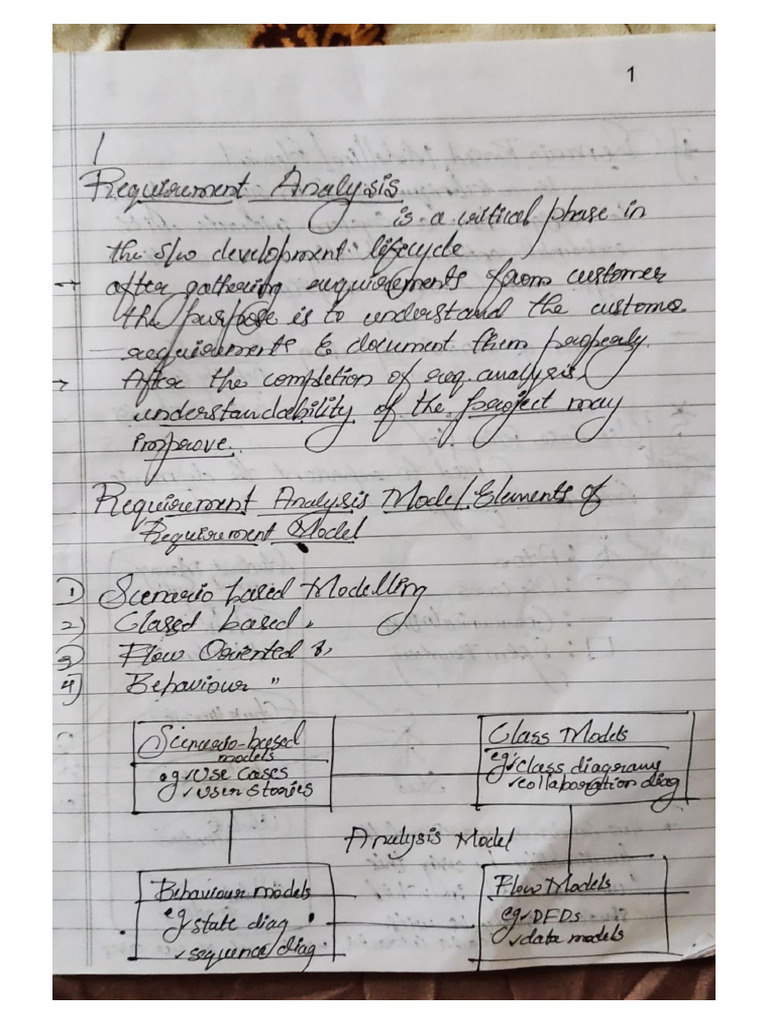 1
1
Requirement Analysis
is a critical phase in
the s/w development lifecycle
→ after gathering requirements from customer
the purpose is to understand the custome
requirements & document them properly.
→ After the completion of req. analysis,
understandability of the project may
improve.
Requirement Analysis Model/Elements of
Requirement Model
1) Scenario based Modelling
2) Classd based "
3) Flow Oriented "
4) Behaviour "
Scenario-based
models
eg ✓ Use Cases
✓ User Stories
Class Models
eg: ✓ class diagrams
✓ collaboration diag
Analysis Model
Behaviour models
eg ✓ state diag
✓ sequence diag
Flow Models
eg ✓ DFDs
✓ data models